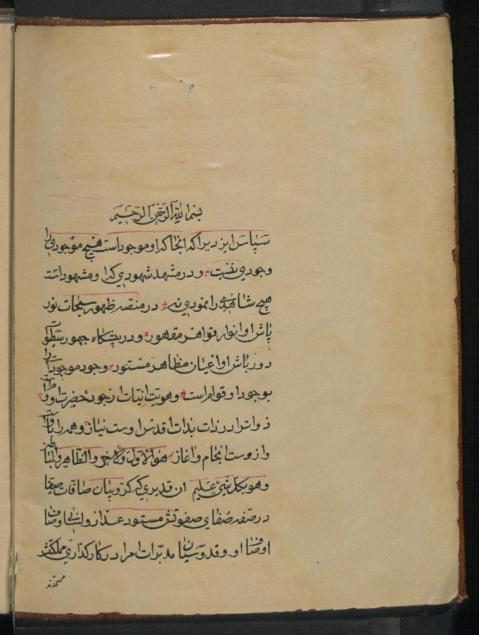 بسم الله الرحمن الرحیم
سپاس ایزدیرا که انجا که او موجود است هیچ موجودیرا
وجودی نیست و در مشهد شهودی که او مشهود است
هیچ شاهدی را نمودی نه در منصه ظهور سبحات نور
پاش او انوار قواهر مقهور و در پیشگاه جمهور سطوت
دورباش او اعیان مظاهر مستور وجود موجودات
بوجود او قوام است و هویت انیات از جود حضرت او
ذواترا در ذات بذات اقدس اوست نیاز و همه را باو
وازوست انجام و اغاز هو الاول والاخر والظاهر والباطن
وهو بکل شیء علیم ان قدیری که کروبیان صافات صفا
در صفه صفای صفوتش مستور
اوصاف او و قدوسیان مدبرات امرا در کارگذاری مملکتش